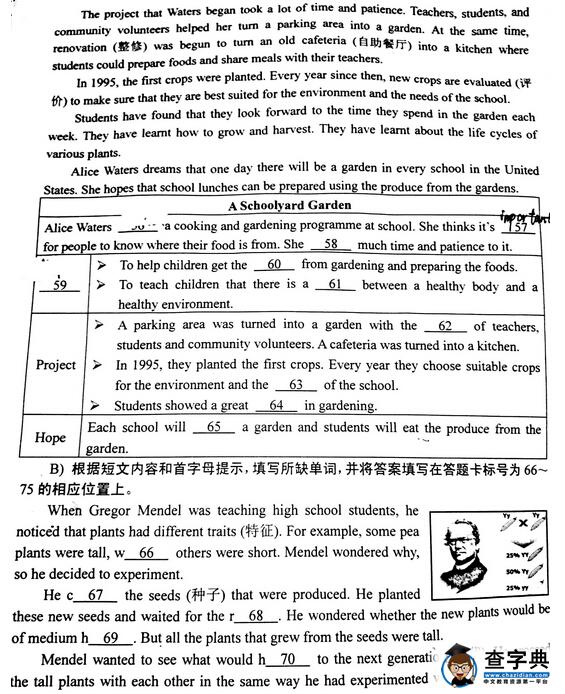 The project that Waters began took a lot of time and patience. Teachers, students, and
community volunteers helped her turn a parking area into a garden. At the same time,
renovation (整修) was begun to turn an old cafeteria (自助餐厅) into a kitchen where
students could prepare foods and share meals with their teachers.
In 1995, the first crops were planted. Every year since then, new crops are evaluated (评
价) to make sure that they are best suited for the environment and the needs of the school.
Students have found that they look forward to the time they spend in the garden each
week. They have learnt how to grow and harvest. They have learnt about the life cycles of
various plants.
Alice Waters dreams that one day there will be a garden in every school in the United
States. She hopes that school lunches can be prepared using the produce from the gardens.
A Schoolyard Garden
important
Alice Waters a cooking and gardening programme at school. She thinks it's 57
for people to know where their food is from. She 58 much time and patience to it.
59
➢ To help children get the 60 from gardening and preparing the foods.
➢ To teach children that there is a 61 between a healthy body and a
healthy environment.
Project
➢ A parking area was turned into a garden with the 62 of teachers,
students and community volunteers. A cafeteria was turned into a kitchen.
➢ In 1995, they planted the first crops. Every year they choose suitable crops
for the environment and the 63 of the school.
➢ Students showed a great 64 in gardening.
Hope
Each school will 65 a garden and students will eat the produce from the
garden.
B) 根据短文内容和首字母提示，填写所缺单词，并将答案填写在答题卡标号为 66~
75 的相应位置上。
When Gregor Mendel was teaching high school students, he
noticed that plants had different traits (特征). For example, some pea
plants were tall, w 66 others were short. Mendel wondered why,
so he decided to experiment.
Yy X Yy
25% YY
50% Yy
25% yy
He c 67 the seeds (种子) that were produced. He planted
these new seeds and waited for the r 68 . He wondered whether the new plants would be
of medium h 69 . But all the plants that grew from the seeds were tall.
Mendel wanted to see what would h 70 to the next
the tall plants with each other in the same way he had experimented
查字典
www.chazidian.com
中文教育资源第一平台